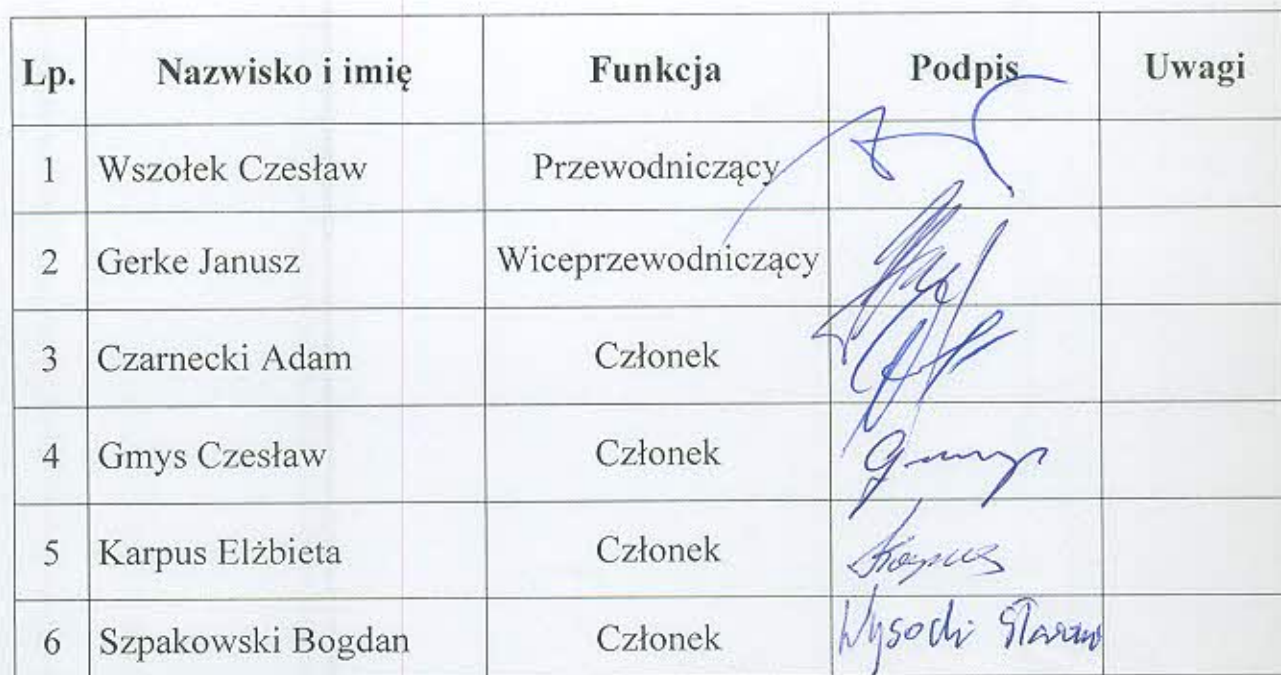 Lp. Nazwisko i imię Funkcja Podpis Uwagi
1 Wszołek Czesław Przewodniczący
2 Gerke Janusz Wiceprzewodniczący
3 Czarnecki Adam Członek
4 Gmys Czesław Członek Gmys
5 Karpus Elżbieta Członek Karpus
6 Szpakowski Bogdan Członek Wysocki